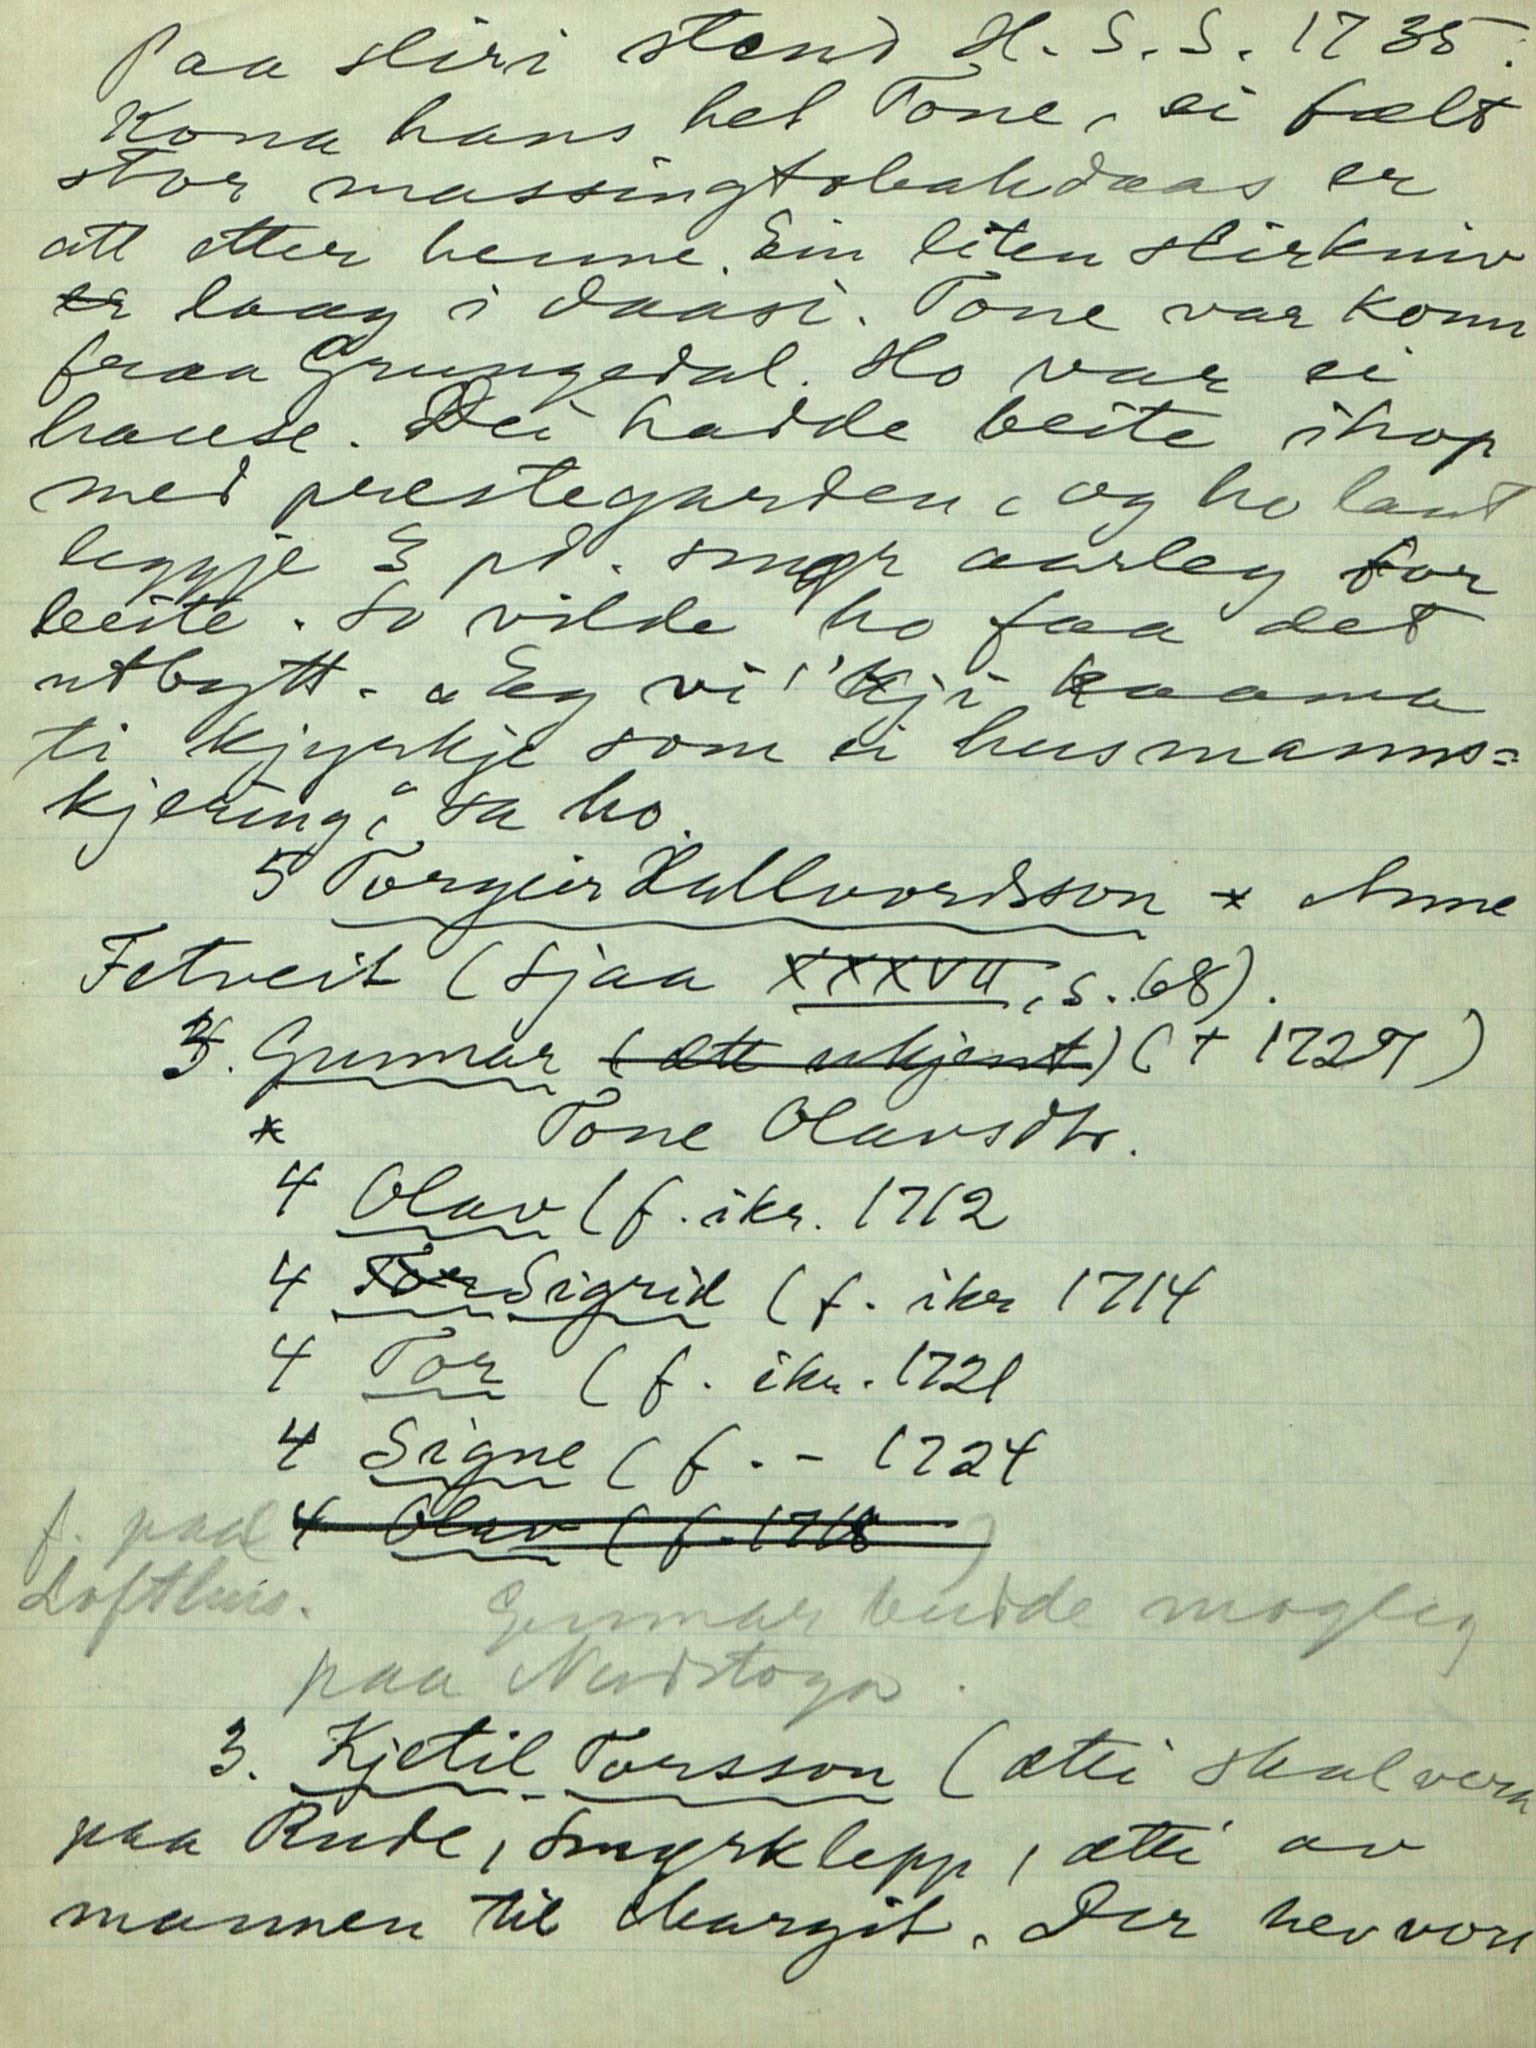 Paa sliri stend H. S. S. 1735.
Kona hans het Tone, ei fælt
stor massingtobakdaas er
att etter henne. Ein liten slirkniv
er laag i daasi. Tone var komi
fraa Grungedal. Ho var ei
hause. Dei hadde beite ihop
med prestegarden, og ho laut
leggje 3 pd. smør aarleg for
beite. So vilde ho faa det
utbytt. "Eg vi' 'kji kaama
ti kjyrkje som ei husmanns=
kjering," sa ho.
5 Torgeir Hallvordsson * Anne
Fetveit (Sjaa XXXVII, s. 68).
3. Gunnar (ætt ukjent) († 1727)
* Tone Olavsdtr.
4 Olav (f. ikr. 1712
4 Tor Sigrid (f. ikr 1714
4 Tor (f. ikr. 1721
4 Signe (f. - 1724
4 Olav (f. 1718)
f. paa
Lofthus.
Gunnar budde mogleg
paa Nordstoga.
3. Kjetil Torsson (ætti skal vera
paa Rude, Smyrklepp, ætti av
mannen til Margit. Der hev vori